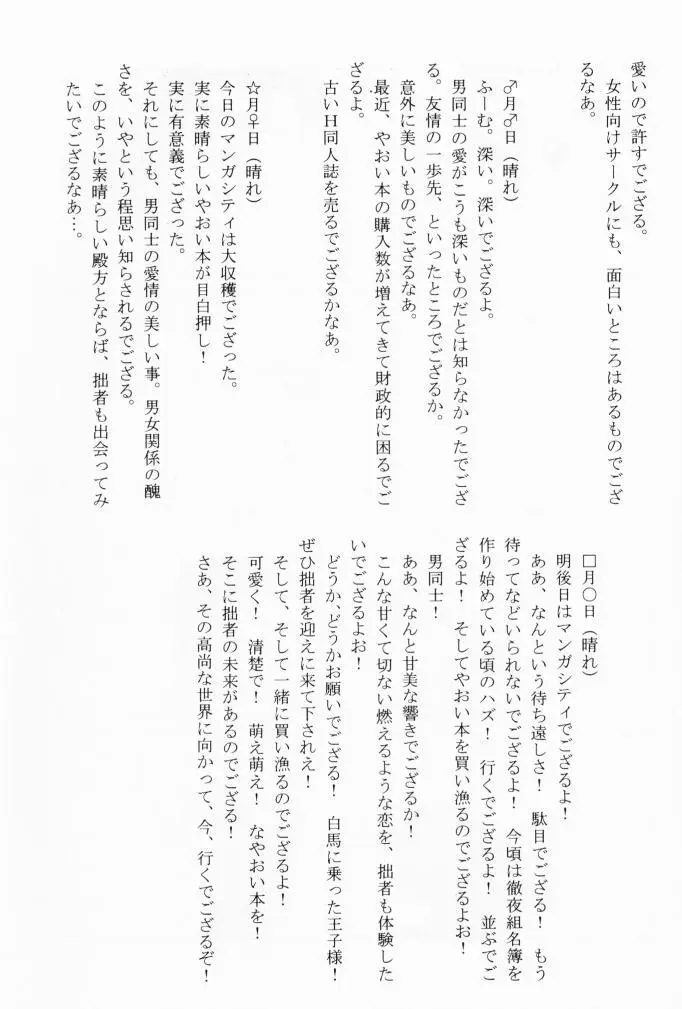 愛いので許すでござる。
　女性向けサークルにも、面白いところはあるものでござ
るなあ。
♂月♂日（晴れ）
　ふーむ。深い。深いでござるよ。
　男同士の愛がこうも深いものだとは知らなかったでござ
る。友情の一歩先、といったところでござるか。
　意外に美しいものでござるなあ。
　最近、やおい本の購入数が増えてきて財政的に困るでご
ざるよ。
　古いH同人誌を売るでござるかなあ。
☆月♀日（晴れ）
　今日のマンガシティは大収穫でござった。
　実に素晴らしいやおい本が目白押し！
　実に有意義でござった。
　それにしても、男同士の愛情の美しい事。男女関係の醜
さを、いやという程思い知らされるでござる。
　このように素晴らしい殿方とならば、拙者も出会ってみ
たいでござるなあ…。
□月〇日（晴れ）
　明後日はマンガシティでござるよ！
　ああ、なんという待ち遠しさ！　駄目でござる！　もう
待ってなどいられないでござるよ！　今頃は徹夜組名簿を
作り始めている頃のハズ！　行くでござるよ！　並ぶでご
ざるよ！　そしてやおい本を買い漁るのでござるよお！
　男同士！
　ああ、なんと甘美な響きでござるか！
　こんな甘くて切ない燃えるような恋を、拙者も体験した
いでござるよお！
　どうか、どうかお願いでござる！　白馬に乗った王子様！
ぜひ拙者を迎えに来て下されえ！
　そして、そして一緒に買い漁るのでござるよ！
　可愛く！　清楚で！　萌え萌え！　なやおい本を！
　そこに拙者の未来があるのでござる！
　さあ、その高尚な世界に向かって、今、行くでござるぞ！